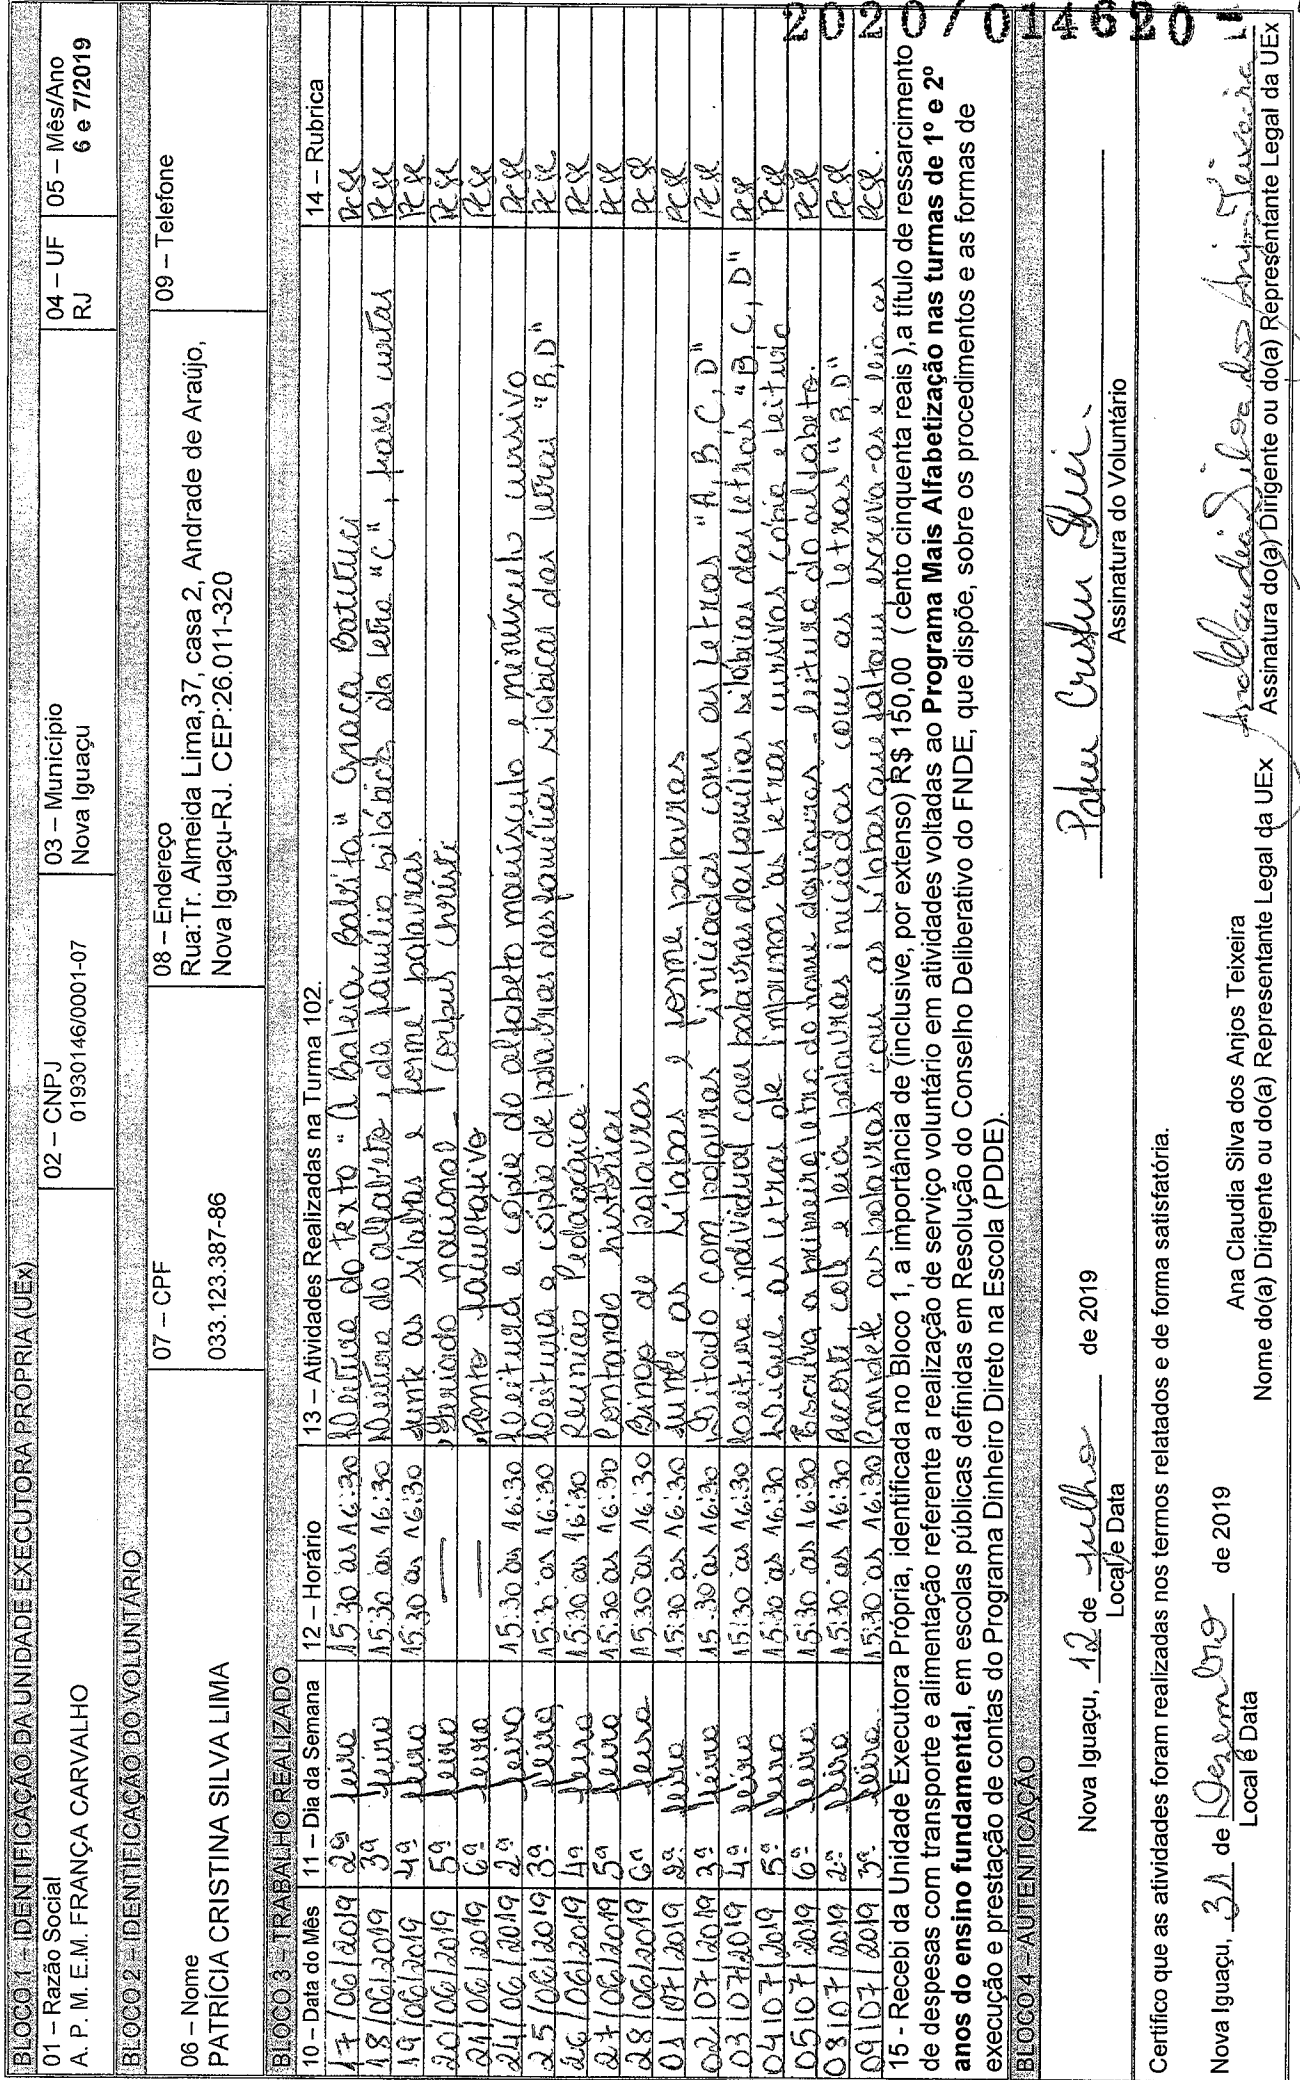 2020/014620-
BLOCO 1 – IDENTIFICAÇÃO DA UNIDADE EXECUTORA PRÓPRIA (UEx)
01 – Razão Social
A. P. M. E.M. FRANÇA CARVALHO
02 – CNPJ
01930146/0001-07
03 – Município
Nova Iguaçu
04 – UF
RJ
05 – Mês/Ano
6 e 7/2019
BLOCO 2 – IDENTIFICAÇÃO DO VOLUNTÁRIO
06 – Nome
PATRÍCIA CRISTINA SILVA LIMA
07 – CPF
033.123.387-86
08 – Endereço
Rua:Tr. Almeida Lima,37, casa 2, Andrade de Araújo,
Nova Iguaçu-RJ. CEP:26.011-320
09 – Telefone
BLOCO 3 – TRABALHO REALIZADO
10 – Data do Mês 11 – Dia da Semana 12 – Horário 13 – Atividades Realizadas na Turma 102. 14 – Rubrica
17/06/2019 2ª feira 15:30 às 16:30 Leitura do texto "A Baleia Balita" Graça Batituci PCSL
18/06/2019 3ª feira 15:30 às 16:30 Leitura do alfabeto, da família silábica da letra "C", frases curtas PCSL
19/06/2019 4ª feira 15:30 às 16:30 Junte as sílabas e forme palavras. PCSL
20/06/2019 5ª feira — Feriado nacional Corpus Christi PCSL
21/06/2019 6ª feira — Ponto facultativo PCSL
24/06/2019 2ª feira 15:30 às 16:30 Leitura e cópia do alfabeto maiúsculo e minúsculo cursivo PCSL
25/06/2019 3ª feira 15:30 às 16:30 Leitura e cópia de palavras das famílias silábicas das letras "B,D" PCSL
26/06/2019 4ª feira 15:30 às 16:30 Reunião Pedagógica. PCSL
27/06/2019 5ª feira 15:30 às 16:30 Contando histórias PCSL
28/06/2019 6ª feira 15:30 às 16:30 Bingo de palavras PCSL
01/07/2019 2ª feira 15:30 às 16:30 Junte as sílabas e forme palavras PCSL
02/07/2019 3ª feira 15:30 às 16:30 Ditado com palavras iniciadas com as letras "A, B, C, D" PCSL
03/07/2019 4ª feira 15:30 às 16:30 Leitura individual com palavras das famílias silábicas das letras "B, C, D" PCSL
04/07/2019 5ª feira 15:30 às 16:30 Ligue as letras de imprensa às letras cursivas cópia e leitura PCSL
05/07/2019 6ª feira 15:30 às 16:30 Escreva a primeira letra do nome das figuras - leitura do alfabeto. PCSL
08/07/2019 2ª feira 15:30 às 16:30 Recorte cole e leia palavras iniciadas com as letras "B,D" PCSL
09/07/2019 3ª feira 15:30 às 16:30 Complete as palavras com as sílabas que faltam escreva-as e leia as PCSL.
15 - Recebi da Unidade Executora Própria, identificada no Bloco 1, a importância de (inclusive, por extenso) R$ 150,00 ( cento cinquenta reais ),a título de ressarcimento
de despesas com transporte e alimentação referente a realização de serviço voluntário em atividades voltadas ao Programa Mais Alfabetização nas turmas de 1º e 2º
anos do ensino fundamental, em escolas públicas definidas em Resolução do Conselho Deliberativo do FNDE, que dispõe, sobre os procedimentos e as formas de
execução e prestação de contas do Programa Dinheiro Direto na Escola (PDDE).
BLOCO 4 – AUTENTICAÇÃO
Nova Iguaçu, 12 de Julho de 2019
Local e Data
Assinatura do Voluntário
Certifico que as atividades foram realizadas nos termos relatados e de forma satisfatória.
Nova Iguaçu, 31 de Dezembro de 2019
Local e Data
Ana Claudia Silva dos Anjos Teixeira
Nome do(a) Dirigente ou do(a) Representante Legal da UEx
Ana Claudia Silva dos Anjos Teixeira
Assinatura do(a) Dirigente ou do(a) Representante Legal da UEx